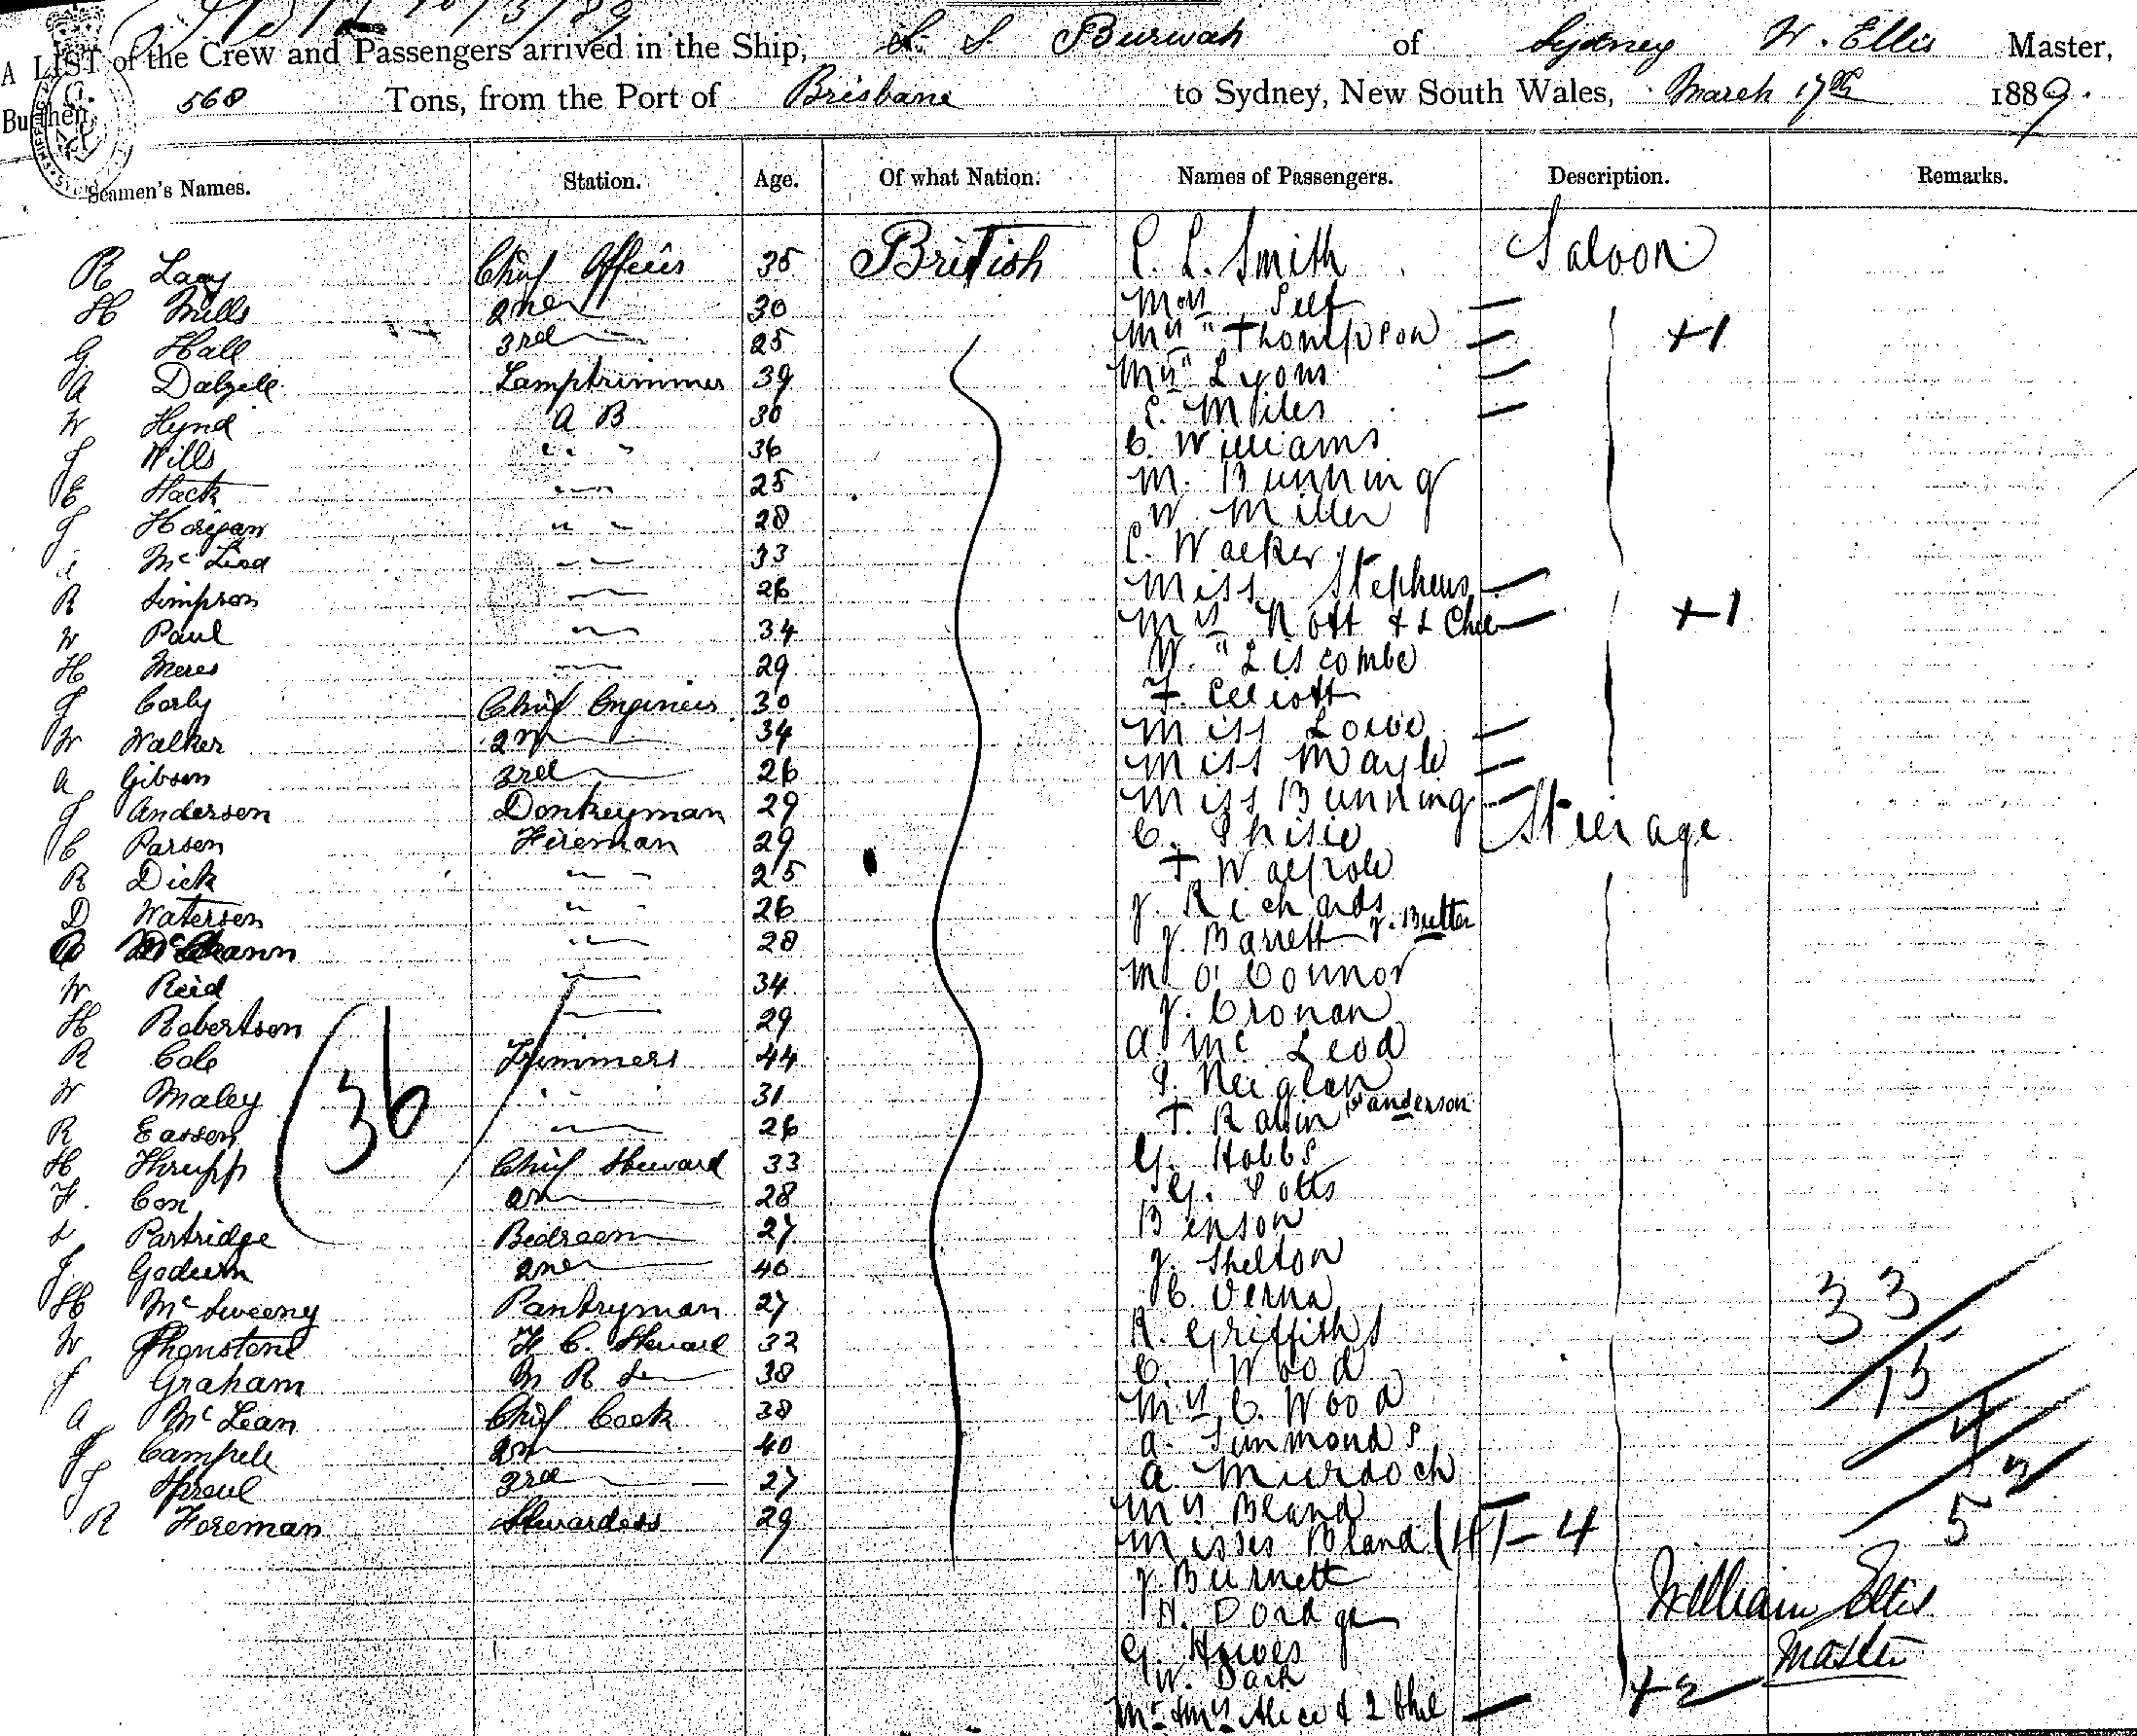 A LIST of the Crew and Passengers arrived in the Ship, S. S. Burwah of Sydney W. Ellis Master,
Burthen, 568 Tons, from the Port of Brisbane to Sydney, New South Wales, March 17th 1889.
Seamen's Names. Station. Age. Of what Nation. Names of Passengers. Description. Remarks.
R Lacy Chief Officer 35 British C. L. Smith Saloon
H Mills 2nd 30 Mrs Self
G Hall 3rd 25 Mrs " Thompson +1
A Dalzell Lamptrimmer 39 Mrs " Lyons
W Hynd A B 30 E. Miles
J Wills " " 36 C. Williams
E Hack " 25 M. Bunning
J Horigan " " 28 W. Miller
McLeod " " 33 C. Walker
R Simpson " 26 Miss Stephens
W Paul " 34 Mrs Nott + 1 Chil +1
H Meres " 29 W. " Liscombe
J Corby Chief Engineer 30 F. Elliott
W Walker 2nd 34 Miss Lowe
A Gibson 3rd 26 Miss Mayle
J Anderson Donkeyman 29 Miss Bunning
C Parsen Fireman 29 C. Steerage
R Dick " " 25 T. Walpole
D Watersen " " 26 J. Richards
" 28 J. Barrett J. Butter
W Reid " 34 M. O'Connor
H Robertson 29 J. Cronan
R Cole Trimmers 44 A. McLeod
36
W Maley " " 31
R Easson " 26 T. Rabin Anderson
H Thrupp Chief Steward 33 G. Hobbs
F. Cox 2nd 28 G. Potts
Partridge Bedroom 27 Benson
J Godwin 2nd 40 J. Shelton
H McSweeny Pantryman 27 C. Verna 33
W Shenstone F C. Steward 32 R. Griffiths
J Graham M R S 38 C. Wood 15
A McLean Chief Cook 38 Mrs C. Wood
J Campell 2nd 40 A. Simmonds 4
J Sproul 3rd 27 A. Murdoch 3
R Foreman Stewardess 29 Mrs Bland 5
Misses Bland (4) - 4
J. Burnett
William Ellis
H. Dordge
G. Howes Master
W. Dark
Mr & Mrs Alice & 2 Chil +2